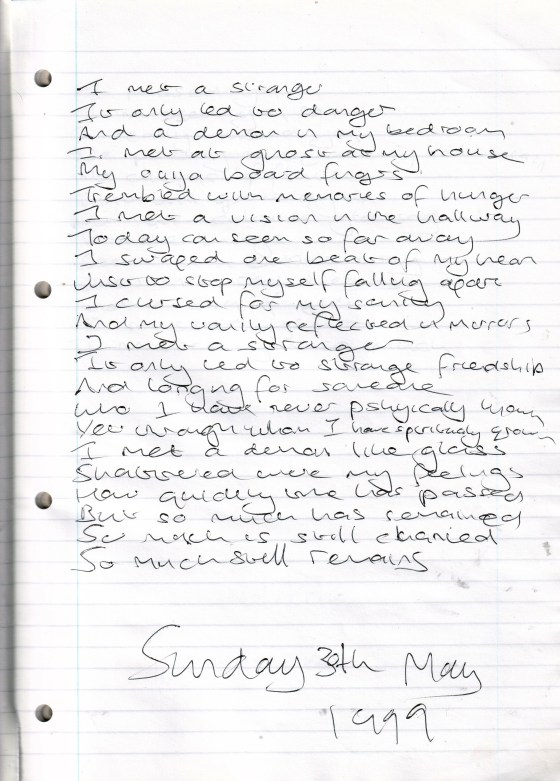 I met a stranger
It only led to danger
And a demon in my bedroom
I met at ghost at my house
My ouija board fingers
Trembled with memories of hunger
I met a vision in the hallway
Today can seem so far away
I swaped one beat of my heart
Just to stop myself falling apart
I cursed for my sanity
And my vanity reflected in mirrors
I met a stranger
It only led to strange friendship
And longing for someone
Who I have never pshyically known
Yet through whom I have spiritually grown
I met a demon like glass
Shattered were my feelings
How quickly time has passed
But so much has remained
So much is still
So much still remains
Sunday 30th May
1999